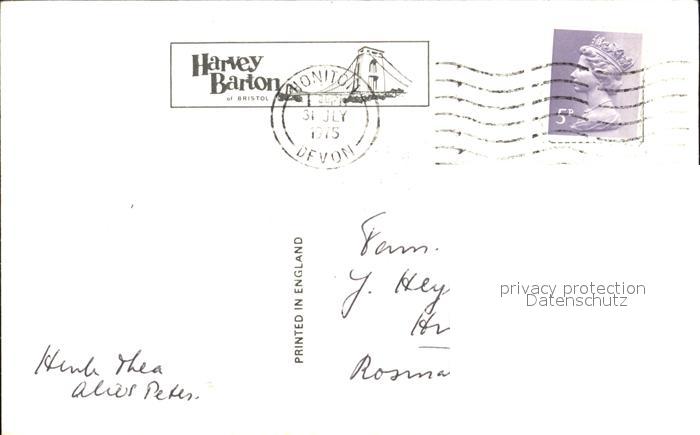 Harvey
Barton
of BRISTOL
HONITON
31 JLY
1975
DEVON
5P
PRINTED IN ENGLAND
Fam.
J. Hey
Rosma
privacy protection
Datenschutz
Henk Thea
Peter.